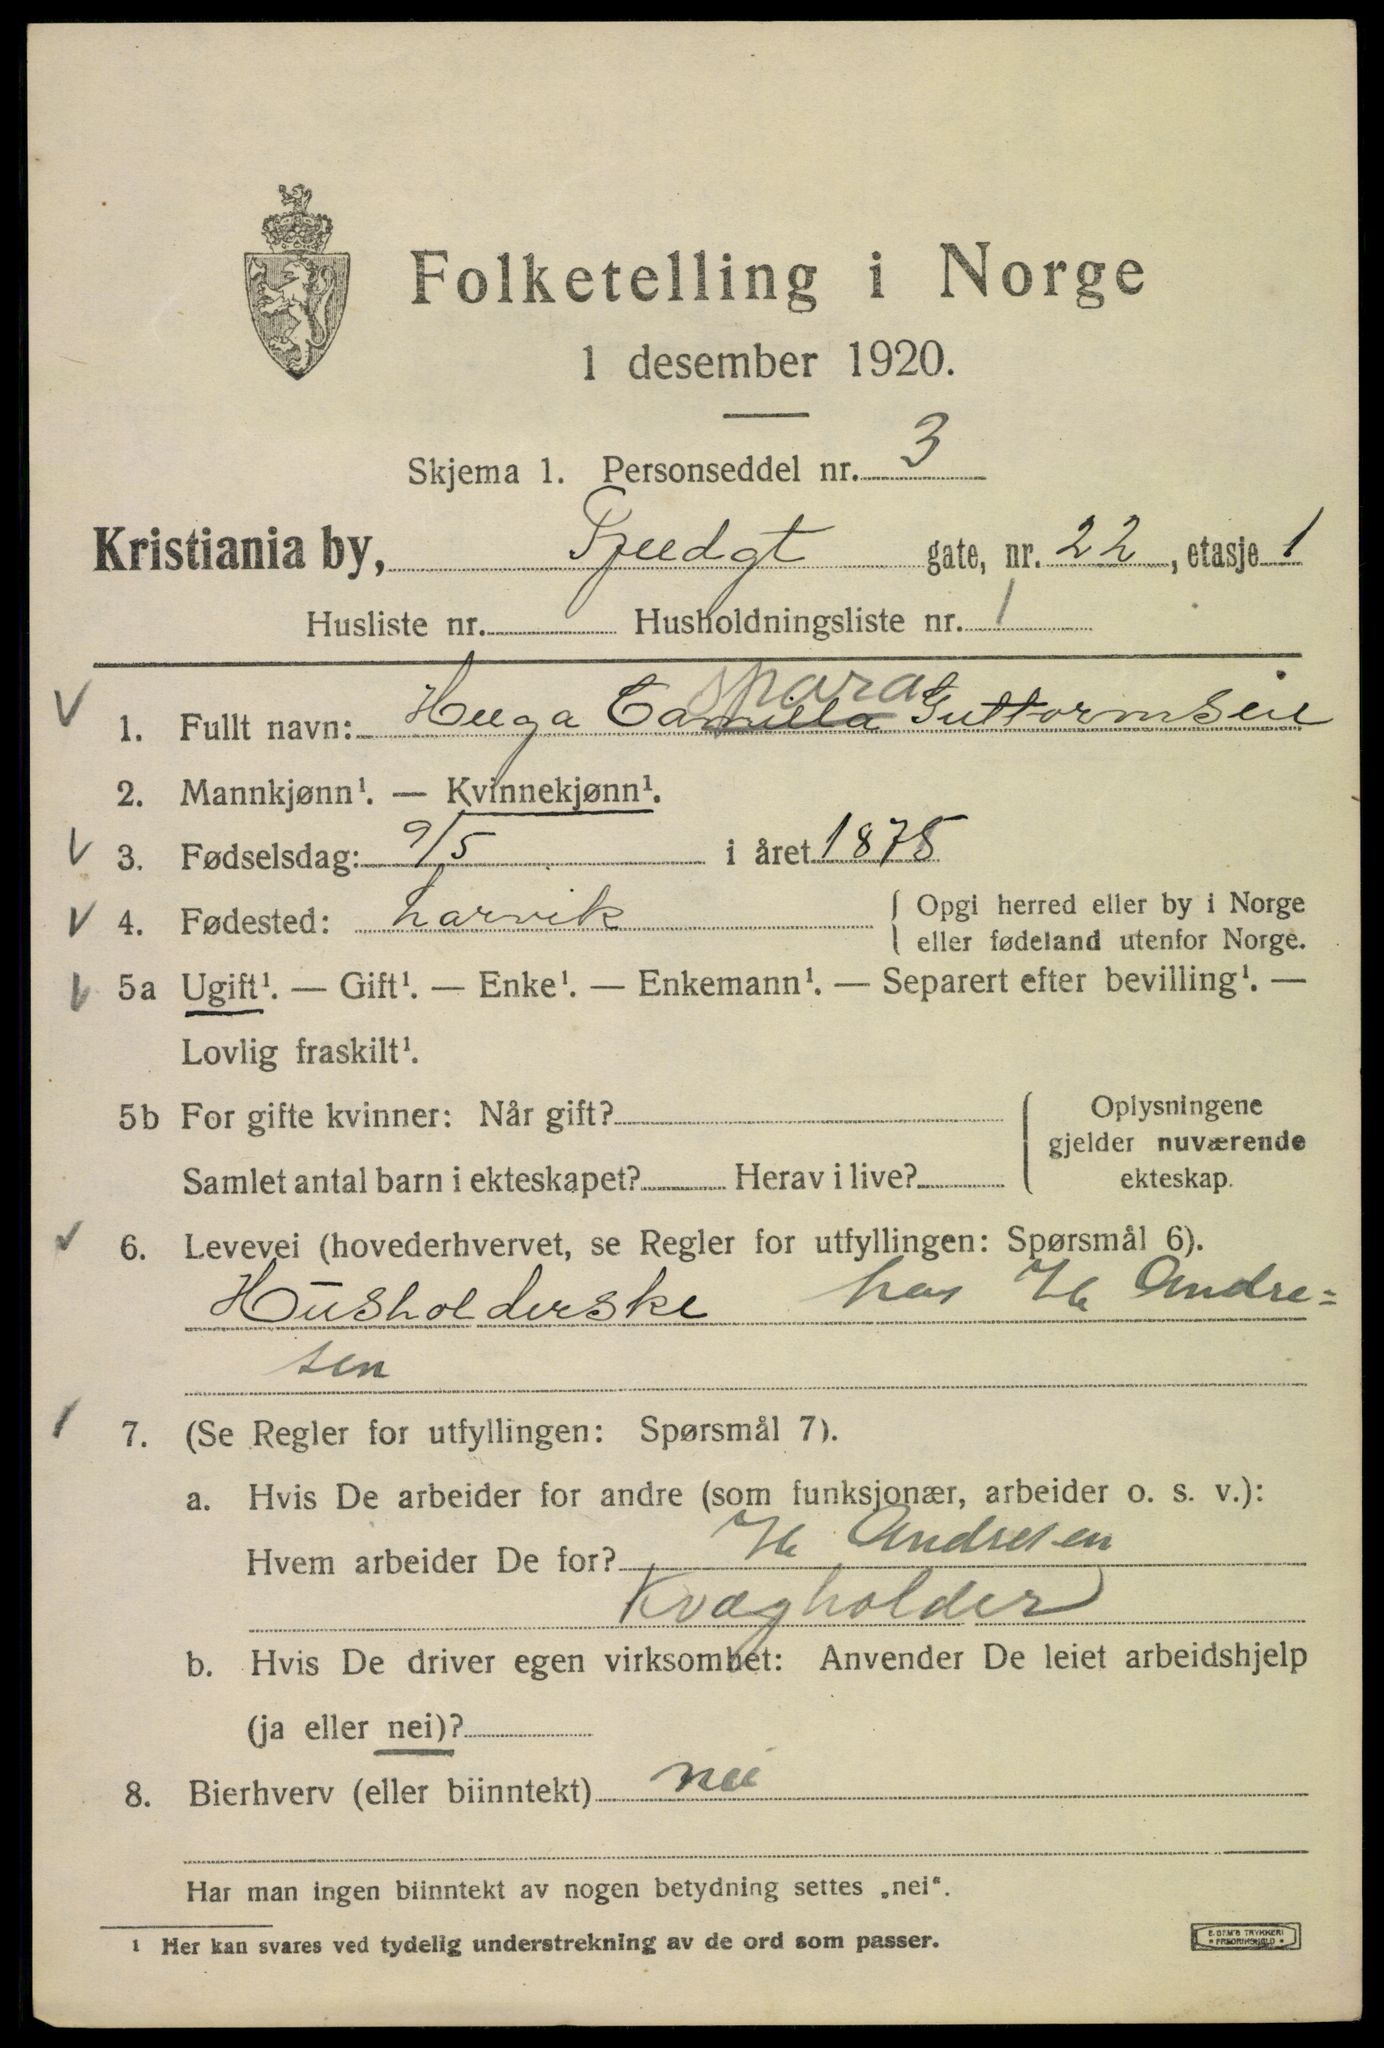 Folketelling i Norge
1 desember 1920.
Skjema 1. Personseddel nr. 3
Kristiania by, gate, nr. 22, etasje 1
Husliste nr. Husholdningsliste nr. 1
1. Fullt navn: Helga Camilla Guttormsen
2. Mannkjønn¹. — Kvinnekjønn¹.
3. Fødselsdag: 9/5 i året 1878
4. Fødested: Larvik
Opgi herred eller by i Norge
eller fødeland utenfor Norge.
5a Ugift¹. — Gift¹. — Enke¹. — Enkemann¹. — Separert efter bevilling¹. —
Lovlig fraskilt¹.
5b For gifte kvinner: Når gift?
Samlet antal barn i ekteskapet? Herav i live?
Oplysningene
gjelder nuværende
ekteskap.
6. Levevei (hovederhvervet, se Regler for utfyllingen: Spørsmål 6).
Husholderske hos Andre=
sen
7. (Se Regler for utfyllingen: Spørsmål 7).
a. Hvis De arbeider for andre (som funksjonær, arbeider o. s. v.):
Hvem arbeider De for? Andresen
Kvægholder
b. Hvis De driver egen virksomhet: Anvender De leiet arbeidshjelp
(ja eller nei)?
8. Bierhverv (eller biinntekt) nei
Har man ingen biinntekt av nogen betydning settes „nei“.
¹ Her kan svares ved tydelig understrekning av de ord som passer.